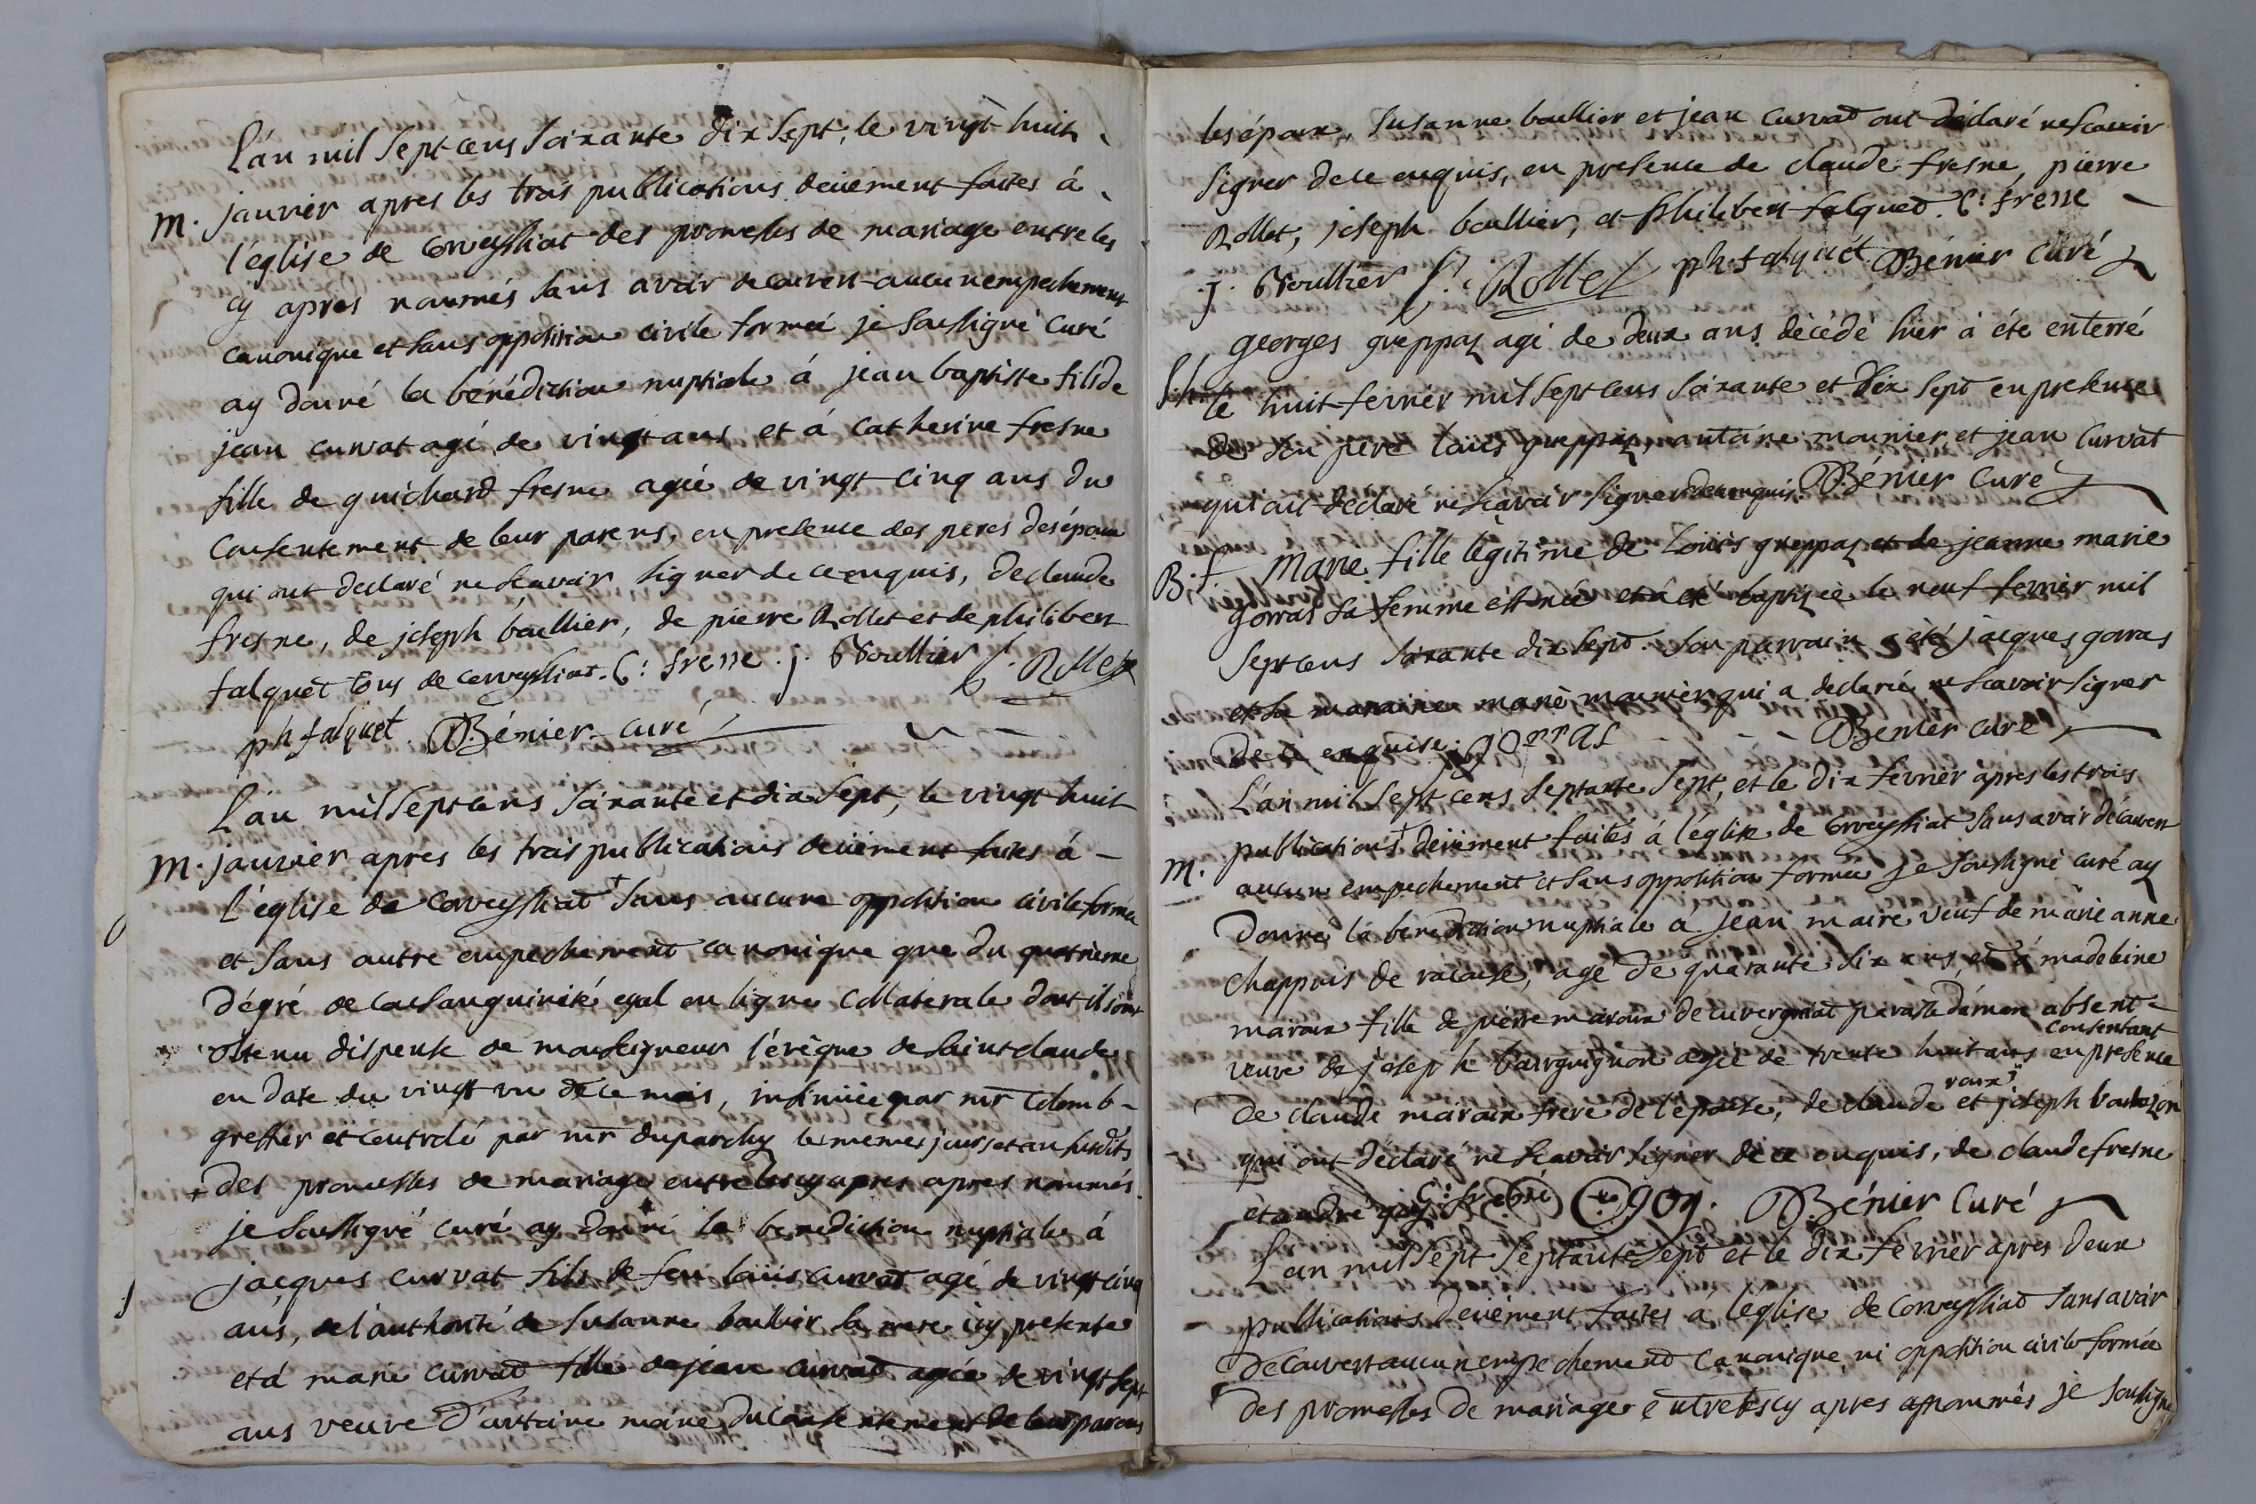 L'an mil sept cens soixante dix sept, le vingt huit
M. janvier apres les trois publications deüement faites à
l'église de Corveyssiat des promesses de mariage entre les
cy apres nommés sans avoir decouvert aucun empechement
canonique et sans opposition civile formeé je soussigné curé
ay donné la bénédiction nuptiale à jean baptiste fils de
jean curvat agé de vingt ans et á catherine fresne
fille de guichard fresne agée de vingt cinq ans du
consentement de leur parens, en presence des peres des époux
qui ont declaré ne scavoir signer de ce enquis, de claude
fresne, de joseph boullier, de pierre Rollet et de philibert
falquet tous de corveyssiat. C: fresne. j. Boullier P. Rollet
ph falquet. Bénier curé
L'an mil sept cens soixante et dix sept, le vingt huit
M. janvier apres les trois publications deüement faites à
l'église de Corveyssiat + sans aucune opposition civile formeé
et sans autre empechement canonique que du quatrieme
dégré de consanguinité egal en ligne collaterale dont ils ont
obtenu dispense de monseigneur l'évêque de saint claude
en date du vingt un de ce mois, insinuée par mr Colomb
greffier et controlé par mr duparchy les memes jours et an susdits
+ des promesses de mariage entre les cy apres apres nommés
je soussigné curé ay donné la benediction nuptiale á
jacques curvat fils de feu loüis curvat agé de vingt cinq
ans, de l'authorité de susanne boullier sa mere icy presente
et á marie curvat fille de jean curvat agée de vingt sept
ans veuve d'antoine maire, du consentement de leur parens
les époux, susanne boullier et jean curvat ont déclaré ne scavoir
signer de ce enquis, en presence de claude fresne, pierre
Rollet, joseph boullier, et philibert falquet. C: fresne
j. Boullier P. Rollet ph falquet Bénier curé
georges greppaz agé de deux ans décédé hier à été enterré
S.h. le huit février mil sept cens soixante et dix sept en presence
de son pere loüis greppaz, antoine mounier, et jean curvat
qui ont déclaré ne scavoir signer de ce enquis. Bénier curé
B. f. Marie fille légitime de Loüis greppaz et de jeanne marie
gorras sa femme est née et á eté baptizée le neuf fevrier mil
sept cens soixante dix sept. son parrain a eté jacques gorras
et sa maraine marie mounier qui a declaré ne scavoir signer
de ce enquise. j gorras Bénier curé
L'an mil sept cens septante sept, et le dix fevrier apres les trois
publications + deüement faites à l'église de Corveyssiat sans avoir découvert
M. aucun empechement et sans opposition formeé je soussigné curé ay
donné la benediction nuptiale à jean maire veuf de marie anne
chappuis de racouse, agé de quarante six ans, et à madeleine
maroux fille de pierre maroux de cuvergnat paroisse absent
consentant
veuve de joseph bourguignon agée de trente huit ans en presence
de claude maroux frere de l'épouse, de claude roux et joseph
qui ont déclaré ne scavoir signer de ce enquis, de claude fresne
et andré goy C: fresne goy. Bénier curé
L'an mil sept septante sept et le dix fevrier apres deux
publications deüement faites à l'église de Corveyssiat sans avoir
decouvert aucun empechement canonique ni opposition civile formée
des promesses de mariage entre les cy apres nommés je soussigné